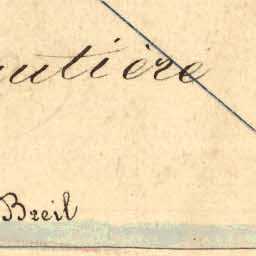 autière
Breil